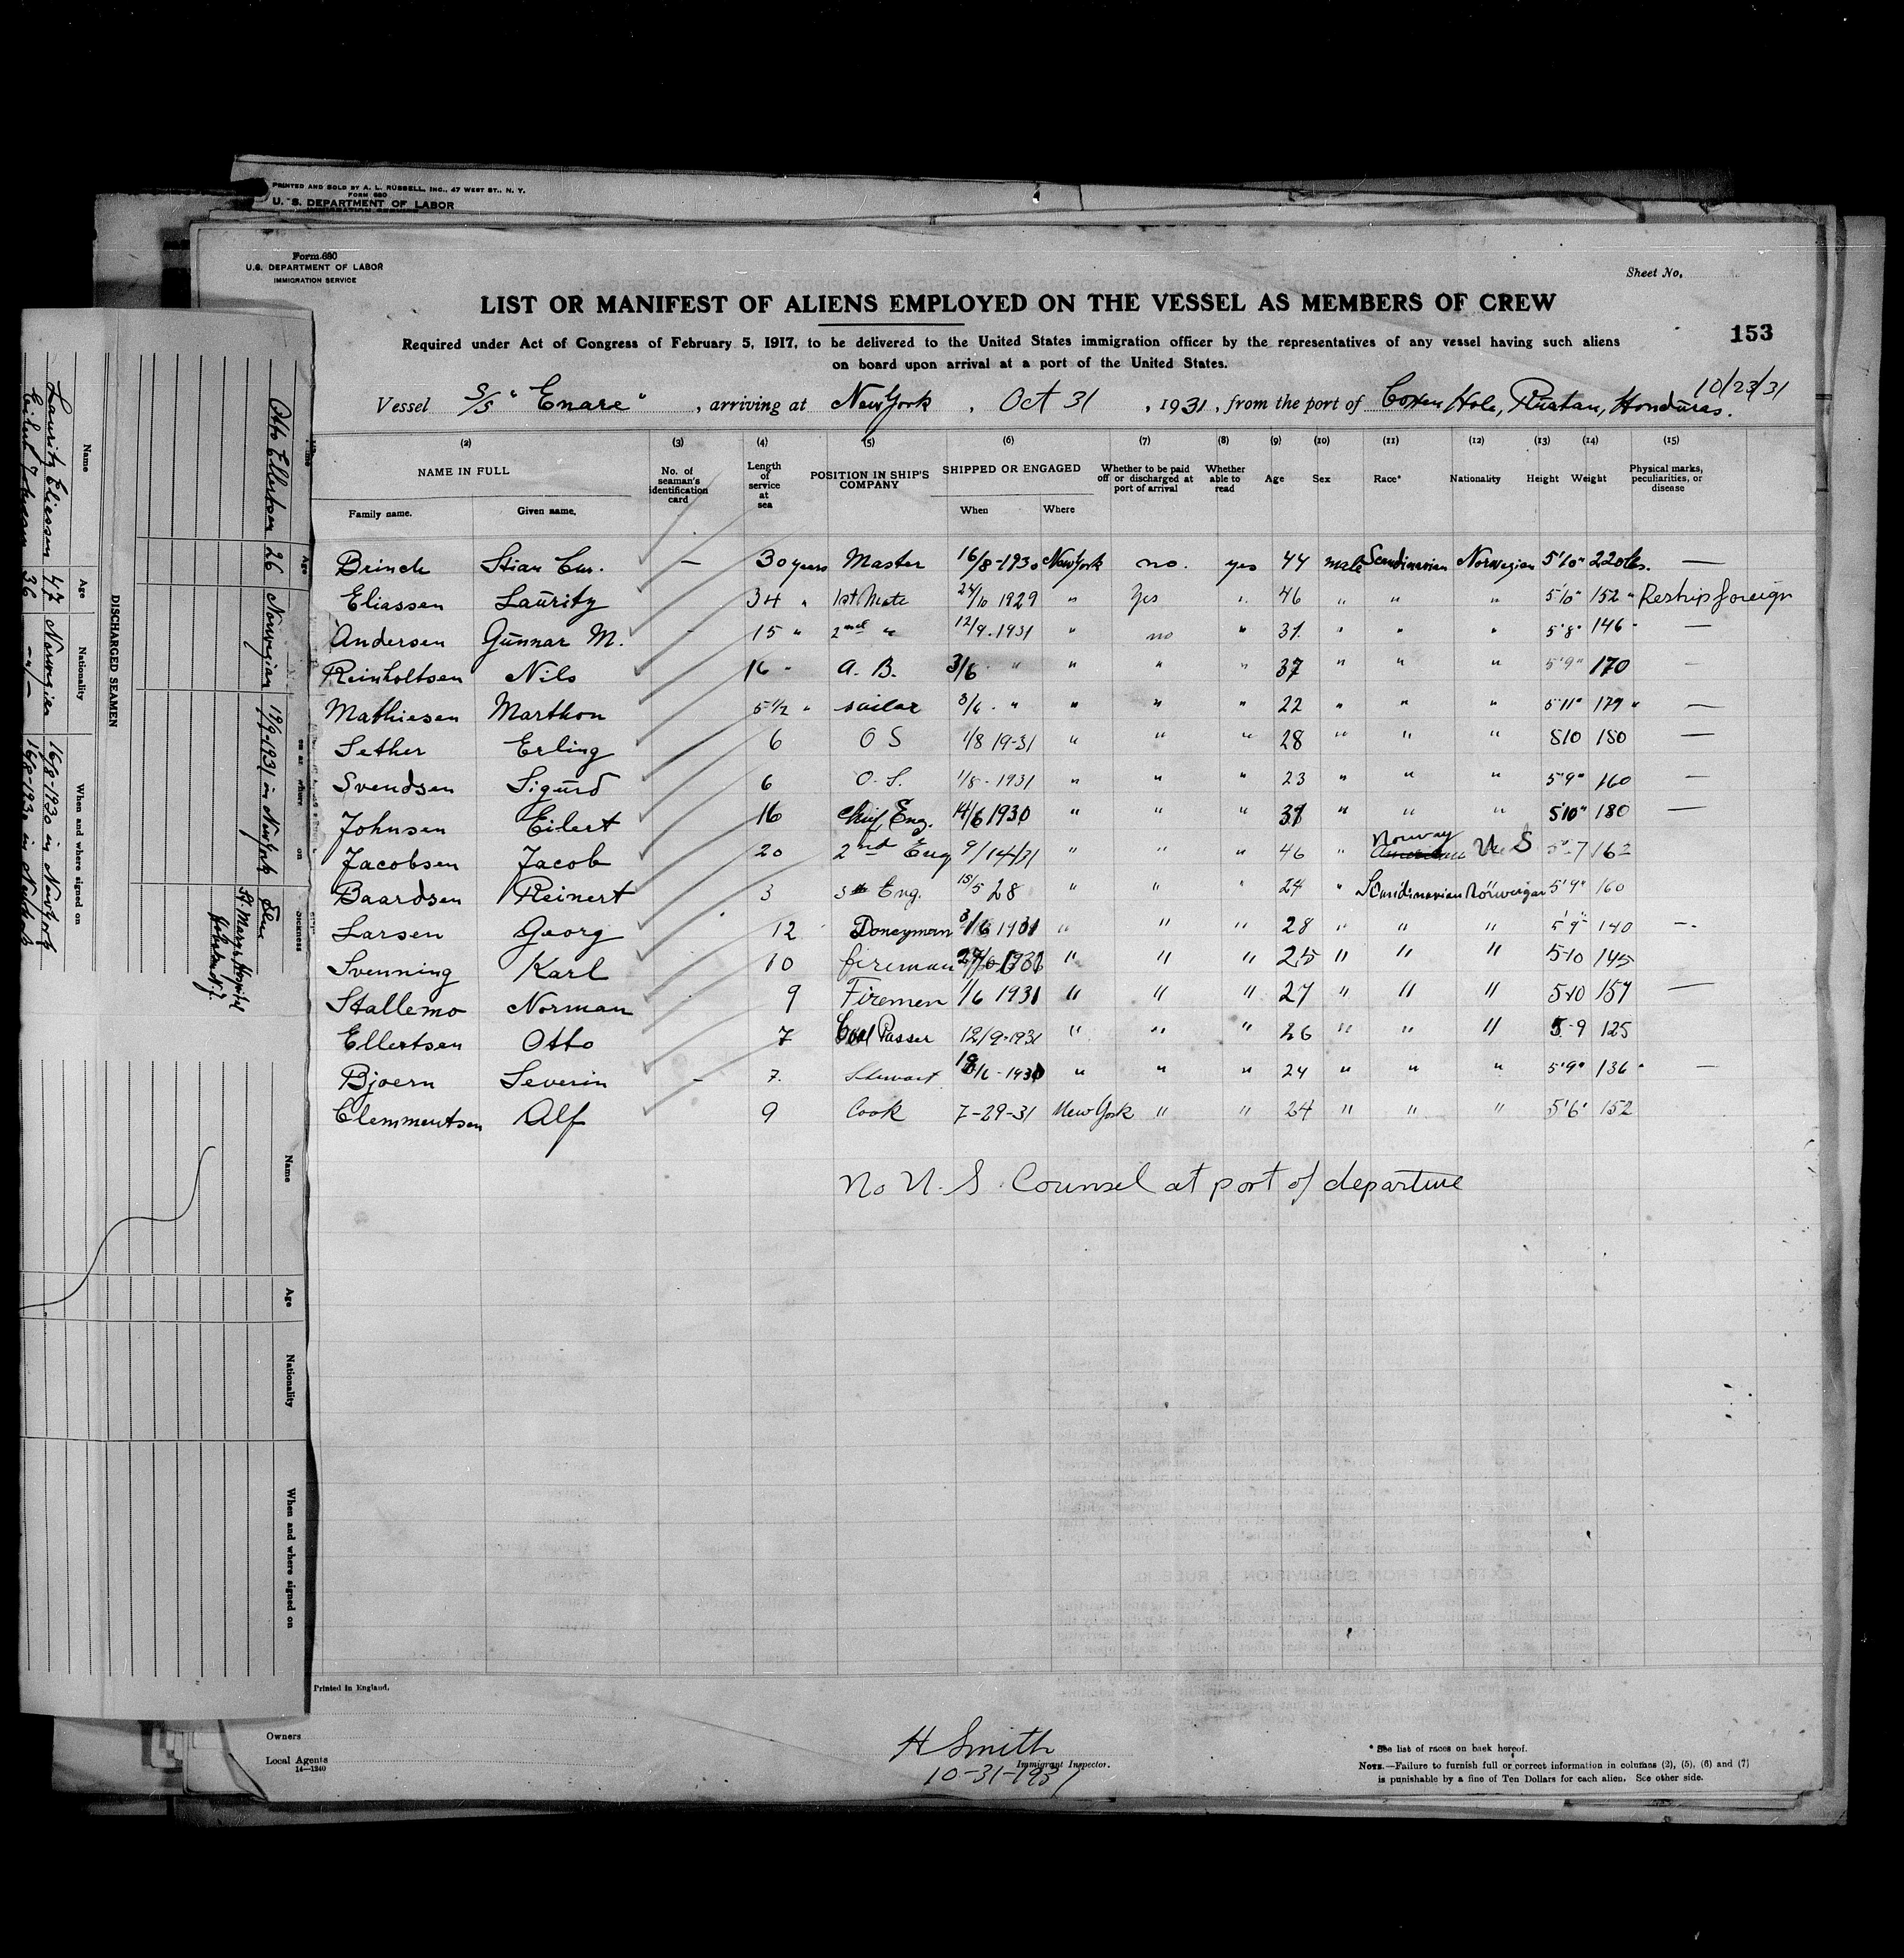 PRINTED AND SOLD BY A. L. RUSSELL, INC., 47 WEST ST., N. Y.
FORM 680
U. S. DEPARTMENT OF LABOR
IMMIGRATION SERVICE
Form 680
U.S. DEPARTMENT OF LABOR
IMMIGRATION SERVICE
Sheet No.
LIST OR MANIFEST OF ALIENS EMPLOYED ON THE VESSEL AS MEMBERS OF CREW
153
Required under Act of Congress of February 5, 1917, to be delivered to the United States immigration officer by the representatives of any vessel having such aliens
on board upon arrival at a port of the United States.
10/23/31
Vessel S/S "Enare", arriving at New York, Oct 31, 1931, from the port of Coxen Hole, Ruatan, Honduras.
(2) (3) (4) (5) (6) (7) (8) (9) (10) (11) (12) (13) (14) (15)
NAME IN FULL No. of seaman's identification card Length of service at sea POSITION IN SHIP'S COMPANY SHIPPED OR ENGAGED Whether to be paid off or discharged at port of arrival Whether able to read Age Sex Race* Nationality Height Weight Physical marks, peculiarities, or disease
Family name. Given name. When Where
Brinch Stian — 30 years Master 16/8-1930 New York no. yes 44 male Scandinavian Norwegian 5'10" 220 lbs. —
Eliassen Lauritz 34 " 1st Mate 24/10 1929 " Yes " 46 " " " 5'10" 152 " Reship foreign
Andersen Gunnar M. - 15 " 2nd " 12/9-1931 " no " 31 " " " 5'8" 146 " —
Reinholtsen Nils 16 - A. B. 3/6 " " " " 37 " " " 5'9" 170 —
Mathiesen Marthon 5 1/2 " sailor 3/6 - " " " " 22 " " " 5'11" 179 " —
Sether Erling 6 O S 1/8 19-31 " " " 28 " " " 510 180 —
Svendsen Sigurd 6 O. S. 1/8-1931 " " " 23 " " " 5'9" 160 —
Johnsen Eilert 16 Chief Eng. 14/6 1930 " " " 37 " " " 5'10" 180 —
Jacobsen Jacob 20 2nd Eng 9/14/31 " " " 46 " Norway American U. S 5-7 162
Baardsen Reinert 3 3 Eng. 15/5 28 " " " 24 " Scandinavian Norwegian 5'9" 160
Larsen Georg 12 Donkeyman 3/6 1931 " " " 28 " " " 5'9" 140 —
Svenning Karl 10 fireman " " " 25 " " " 5-10 145
Stallemo Norman 9 Firemen 1/6 1931 " " " 27 " " " 5-10 157 —
Ellertsen Otto 7 Coal Passer 12/9-1931 " " " 26 " " " 5-9 125
Bjoern Severin - 7. Stewart " " " 24 " " " 5'9" 136 " —
Clemmentsen Alf 9 Cook 7-29-31 New York " " 24 " " " 5'6" 152
No U. S. Counsel at port of departure
Printed in England.
Owners
Local Agents
14—1240
H Smith
Immigrant Inspector.
10-31-1931
* See list of races on back hereof.
NOTE.—Failure to furnish full or correct information in columns (2), (5), (6) and (7)
is punishable by a fine of Ten Dollars for each alien. See other side.
Age
Sickness
Otto Ellertsen 26 Norwegian 19/9-1931 in New York
St. Mary Hospital
Hoboken N.J.
DISCHARGED SEAMEN
Name Age Nationality When and where signed on
Lauritz Eliessen 47 Norwegian 16/8-1930 in New York
Eilert Johnsen 36 -"- 16/8-1930 in New York
Name Age Nationality When and where signed on